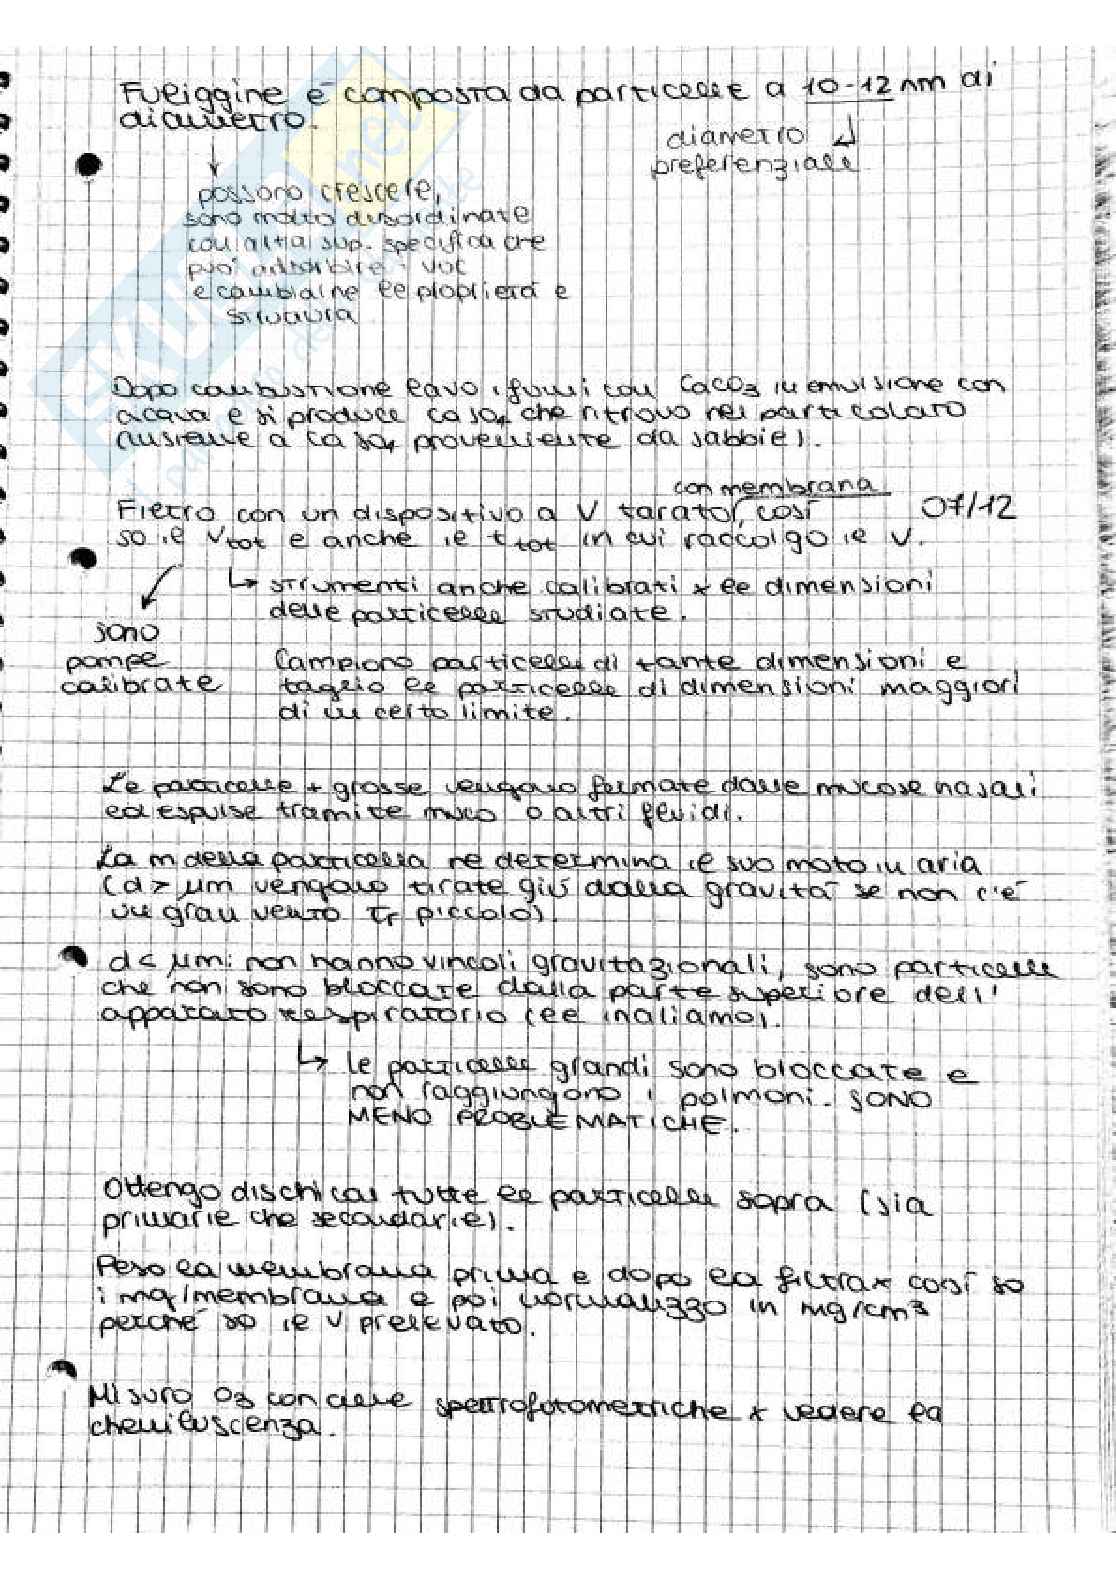 Fuliggine è composta da particelle a 10-12 nm di
diametro.
diametro
preferenziale
possono crescere,
sono molto disordinate
con alta sup. specifica che
può adsorbire VOC
e cambiarne le proprietà e
struttura
Dopo combustione lavo i fumi con CaCO3 in emulsione con
acqua e si produce CaSO4 che ritrovo nel particolato
(insieme a CaSO4 proveniente da sabbie).
con membrana
Filtro con un dispositivo a V tarato, così 07/12
so il Vtot e anche il ttot in cui raccolgo il V.
strumenti anche calibrati x le dimensioni
delle particelle studiate.
sono
pompe
calibrate
Campiono particelle di tante dimensioni e
taglio le particelle di dimensioni maggiori
di un certo limite.
Le particelle + grosse vengono fermate dalle mucose nasali
ed espulse tramite muco o altri fluidi.
La m della particella ne determina il suo moto in aria
(d > μm vengono tirate giù dalla gravità se non c'è
un gran vento piccolo).
d < μm: non hanno vincoli gravitazionali, sono particelle
che non sono bloccate dalla parte superiore dell'
apparato respiratorio (le inaliamo).
le particelle grandi sono bloccate e
non raggiungono i polmoni. SONO
MENO PROBLEMATICHE.
Ottengo dischi con tutte le particelle sopra (sia
primarie che secondarie).
Peso la membrana prima e dopo la filtraz così so
i mg/membrana e poi normalizzo in mg/cm3
perché so il V prelevato.
Misuro O3 con celle spettrofotometriche x vedere la
chemiluscenza.